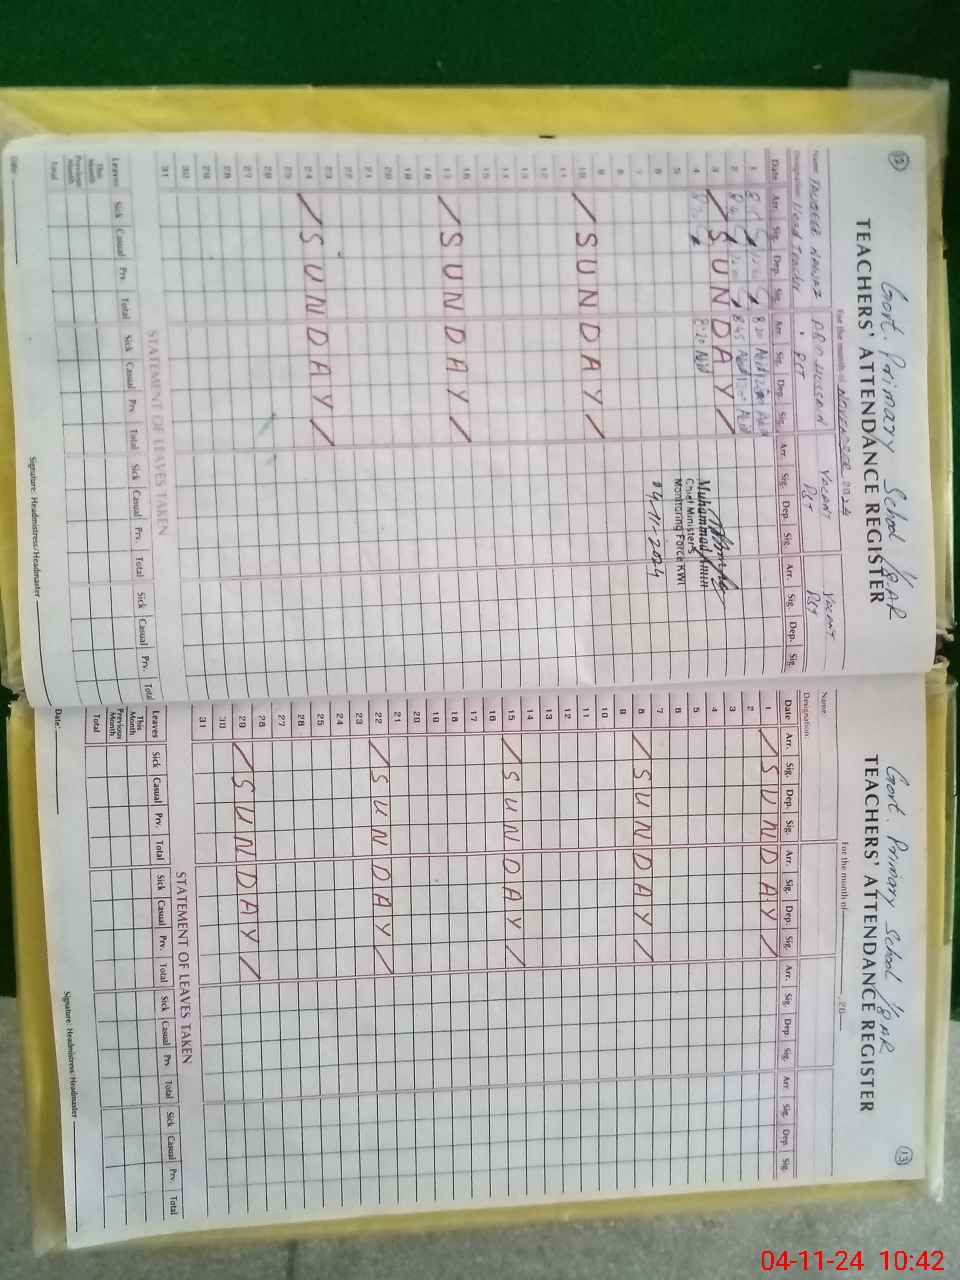 12
Govt. Primary School 1/8.AR
TEACHERS' ATTENDANCE REGISTER
For the month of NOVEMBER 2024
Name
NAWAZ
HUSSAIN
VACANT
VACANT
Designation
Head Teacher
PST
PST
PST
Date Arr. Sig. Dep. Sig. Arr. Sig. Dep. Sig. Arr. Sig. Dep. Sig. Arr. Sig. Dep. Sig.
1
2
8 45
3 / SUNDAY /
4 8 20
5
6
7
8
9
10 / SUNDAY /
11
12
13
14
15
16
17 / SUNDAY /
18
19
20
21
22
23
24 / SUNDAY /
25
26
27
28
29
30
31
Muhammad Amin
Chief Minister's
Monitoring Force KWL
04-11-2024
STATEMENT OF LEAVES TAKEN
Leaves Sick Casual Prv. Total Sick Casual Prv. Total Sick Casual Prv. Total Sick Casual Prv. Total
This Month
Previous Month
Total
Date:
Signature: Headmistress/Headmaster
13
Govt. Primary School 1/8.AR
TEACHERS' ATTENDANCE REGISTER
For the month of 20
Name
Designation:
Date Arr. Sig. Dep. Sig. Arr. Sig. Dep. Sig. Arr. Sig. Dep. Sig. Arr. Sig. Dep. Sig.
1 / SUNDAY /
2
3
4
5
6
7
8 / SUNDAY /
9
10
11
12
13
14
15 / SUNDAY /
16
17
18
19
20
21
22 / SUNDAY /
23
24
25
26
27
28
29 / SUNDAY /
30
31
STATEMENT OF LEAVES TAKEN
Leaves Sick Casual Prv. Total Sick Casual Prv. Total Sick Casual Prv. Total Sick Casual Prv. Total
This Month
Previous Month
Total
Date:
Signature: Headmistress/Headmaster
04-11-24 10:42